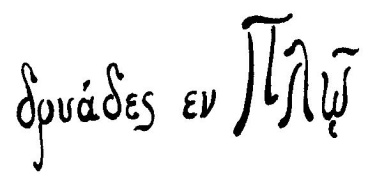 δρυάδες εν Πλῳ̃